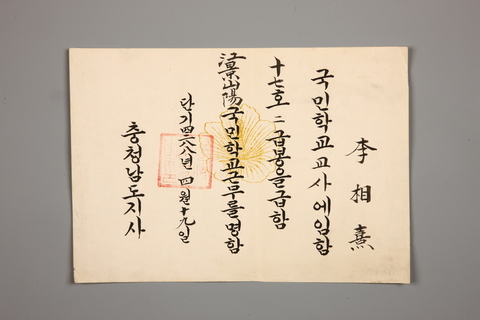 李相熹
국민학교교사에임함
十七호 二급봉을급함
江景山陽국민학교근무를명함
단기四二八八년 四월十九일
충청남도지사